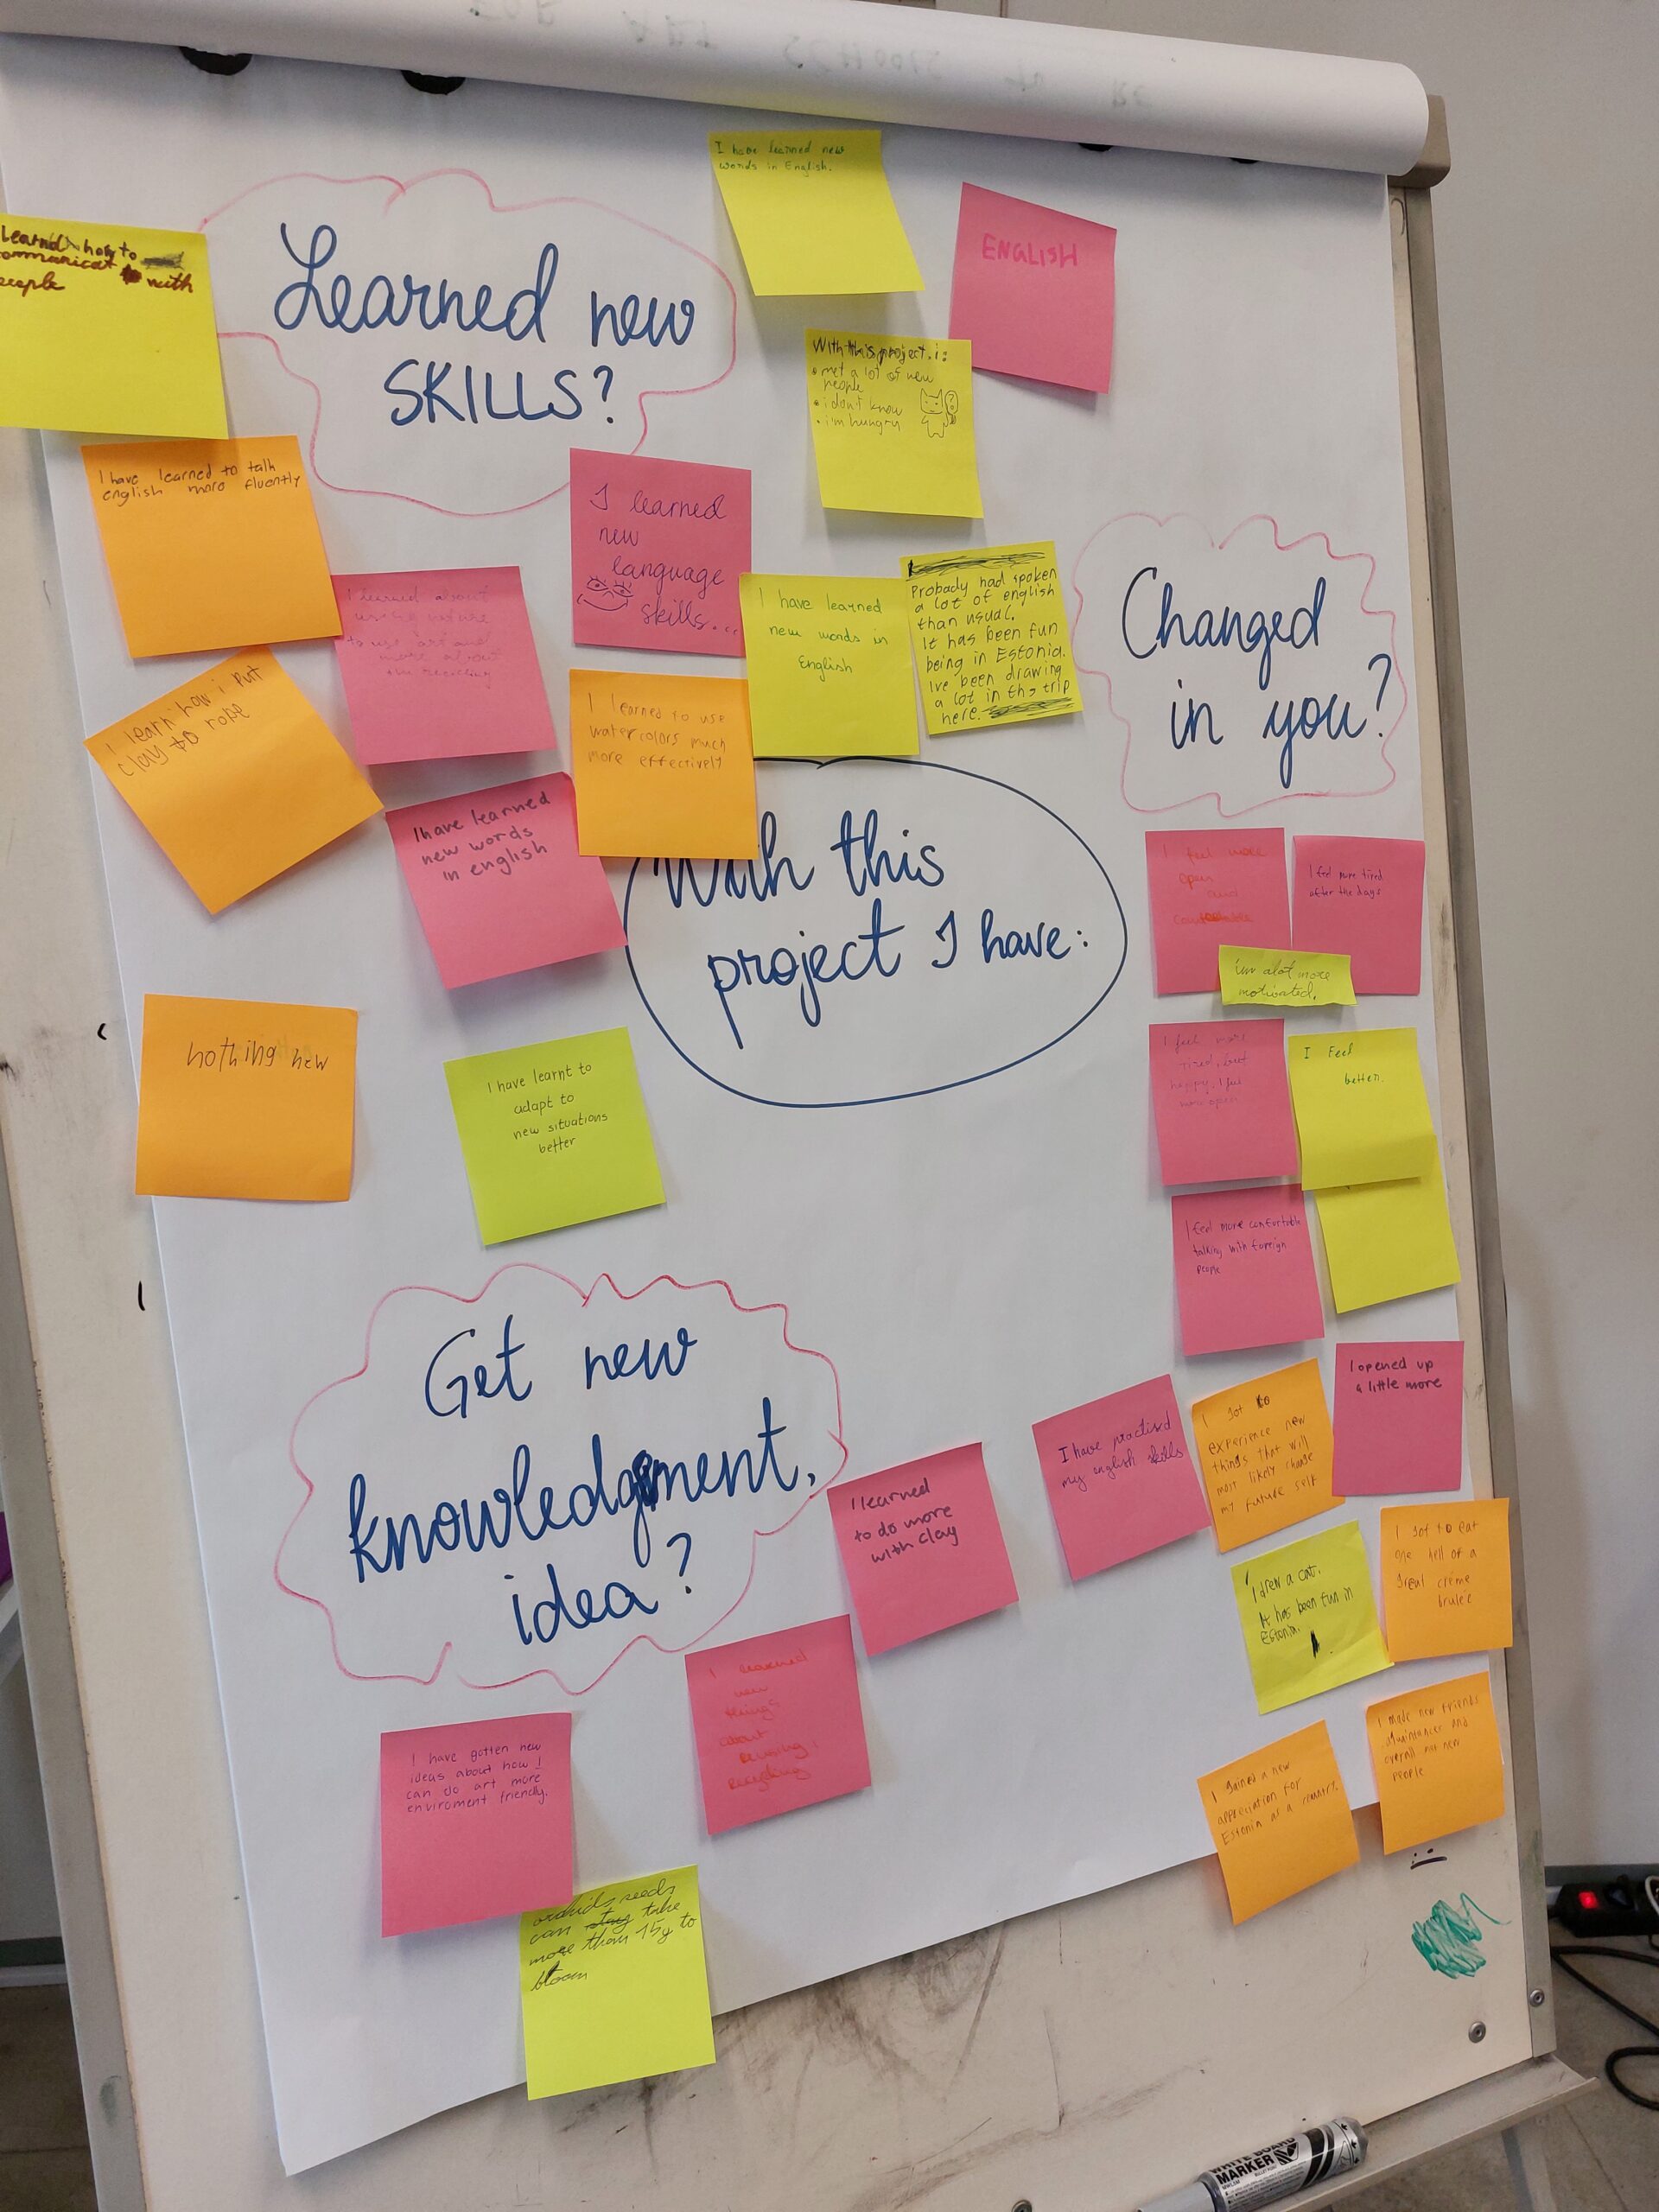 Learned new
SKILLS?
Learnd how to
with
I have learned new
words in English.
ENGLISH
With this project i:
• met a lot of new
people
• i don't know
• i'm hungry
I have learned to talk
english more fluently
I learned
new
language
skills...
I learned about
to use art and
more about
I have learned
new words in
English
Probady had spoken
a lot of english
than usual.
It has been fun
being in Estonia.
Ive been drawing
a lot in the trip
here.
Changed
in you?
I learn how i put
clay to rope
I learned to use
watercolors much
more effectively
I have learned
new words
in english
With this
project I have:
I feel more
open
and
I feel more tired
after the days
i'm alot more
motivated.
nothing new
I have learnt to
adapt to
new situations
better
I feel more
tired, but
happy, I feel
more open
I Feel
better.
I feel more comfortable
talking with foreign
people
Get new
knowledgment,
idea?
I opened up
a little more
I got to
experience new
things that will
most likely change
my future self
I have practised
my english skills
I learned
to do more
with clay
I got to eat
one hell of a
great créme
brulee
I drew a cat.
It has been fun in
Estonia.
I learned
new
things
about
reusing/
recycling
I made new friends
and
overall met new
people
I gained a new
appreciation for
Estonia as a country.
I have gotten new
ideas about how I
can do art more
enviroment friendly.
orchids seeds
can stay take
more than 15y to
bloom
WHITE BOARD
MARKER